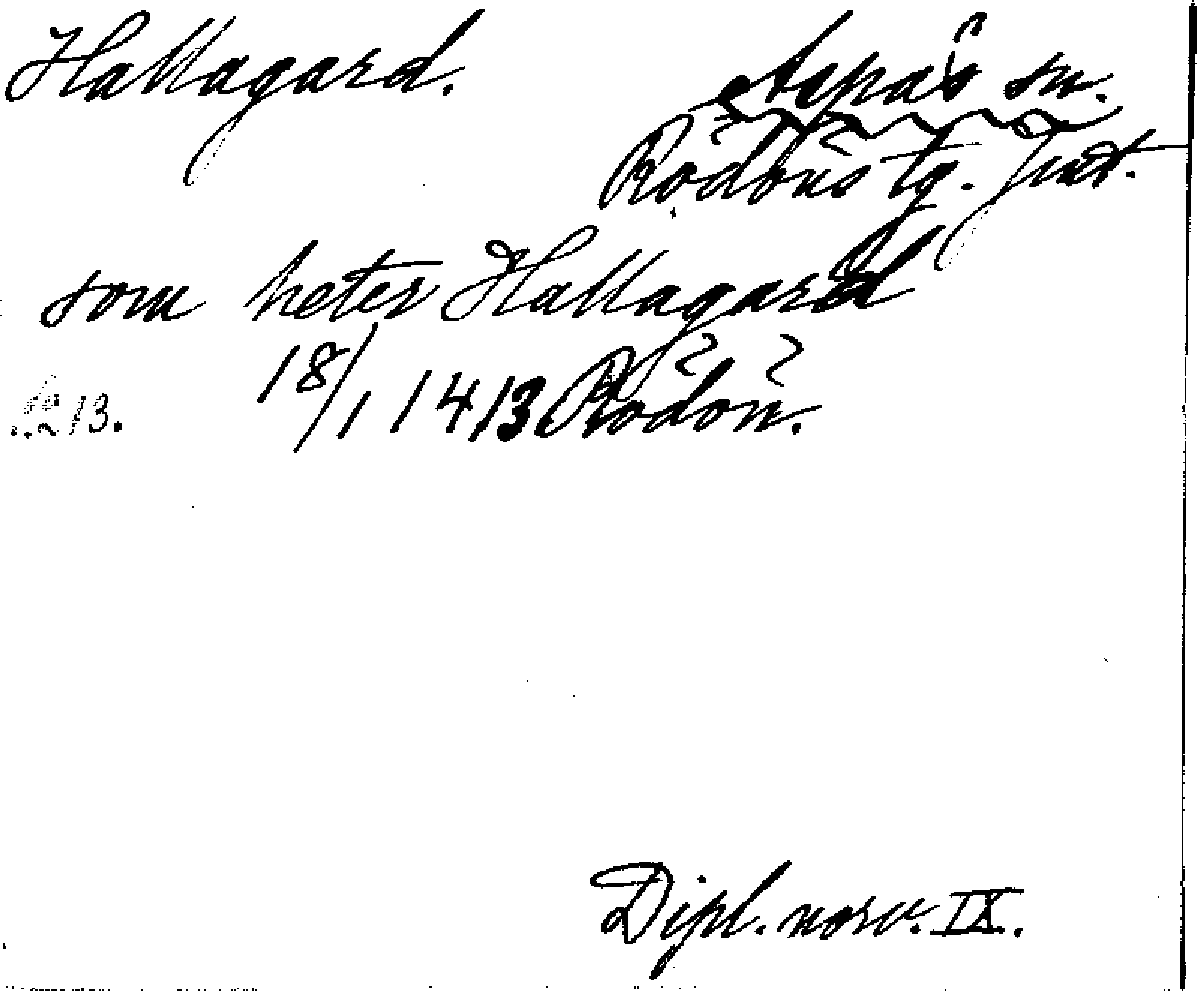 Hallagard.
Aspås sn.
Rödöns tg. Jmt.
som heter Hallagard
s. 213. 18/1 1413 Rödön.
Dipl. norv. IX.